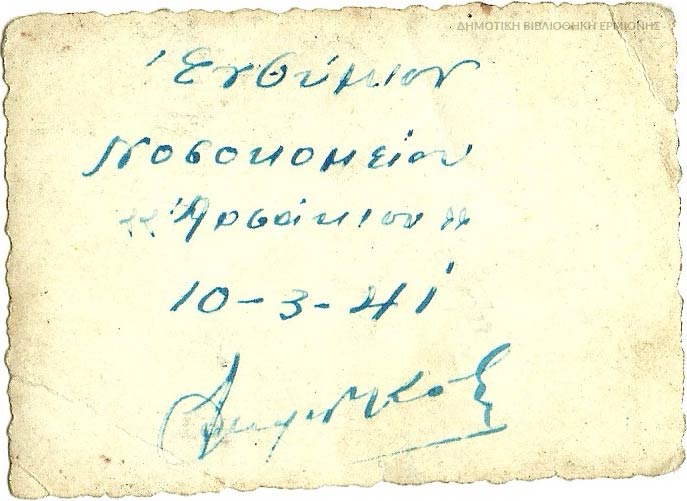 ΔΗΜΟΤΙΚΗ ΒΙΒΛΙΟΘΗΚΗ ΕΡΜΙΟΝΗΣ
Ἐνθύμιον
Νοσοκομείου
«Ἀρσάκιον»
10-3-41